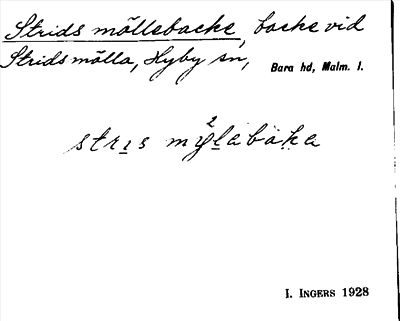 Strids möllebacke, backe vid
Strids mölla, Hyby sn, Bara hd, Malm. l.
strıs my²labaka
I. INGERS 1928